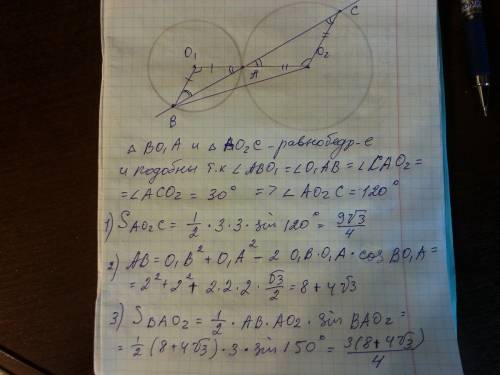 O₁
O₂
C
A
B
△ BO₁A и △ AO₂C - равнобедр-е
и подобны т.к ∠ABO₁ = ∠O₁AB = ∠CAO₂ =
= ∠ACO₂ = 30° => ∠AO₂C = 120°
1) S AO₂C = 1/2 · 3 · 3 · sin 120° = 9√3/4
2) AB = O₁B² + O₁A² - 2 O₁B · O₁A · cos BO₁A =
= 2² + 2² + 2 · 2 · 2 · √3/2 = 8 + 4√3
3) S BAO₂ = 1/2 · AB · AO₂ · sin BAO₂ =
= 1/2 (8 + 4√3) · 3 · sin 150° = 3(8 + 4√3)/4